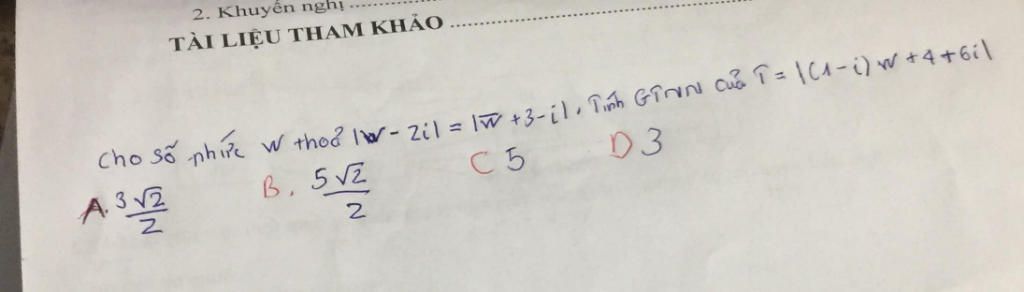 2. Khuyến nghị ....................
TÀI LIỆU THAM KHẢO ....................
Cho số phức w thoả |w - 2i| = |w̅ + 3 - i|. Tính GTNN của T = |(1 - i) w + 4 + 6i|
A. 3√2/2 B. 5√2/2 C 5 D 3